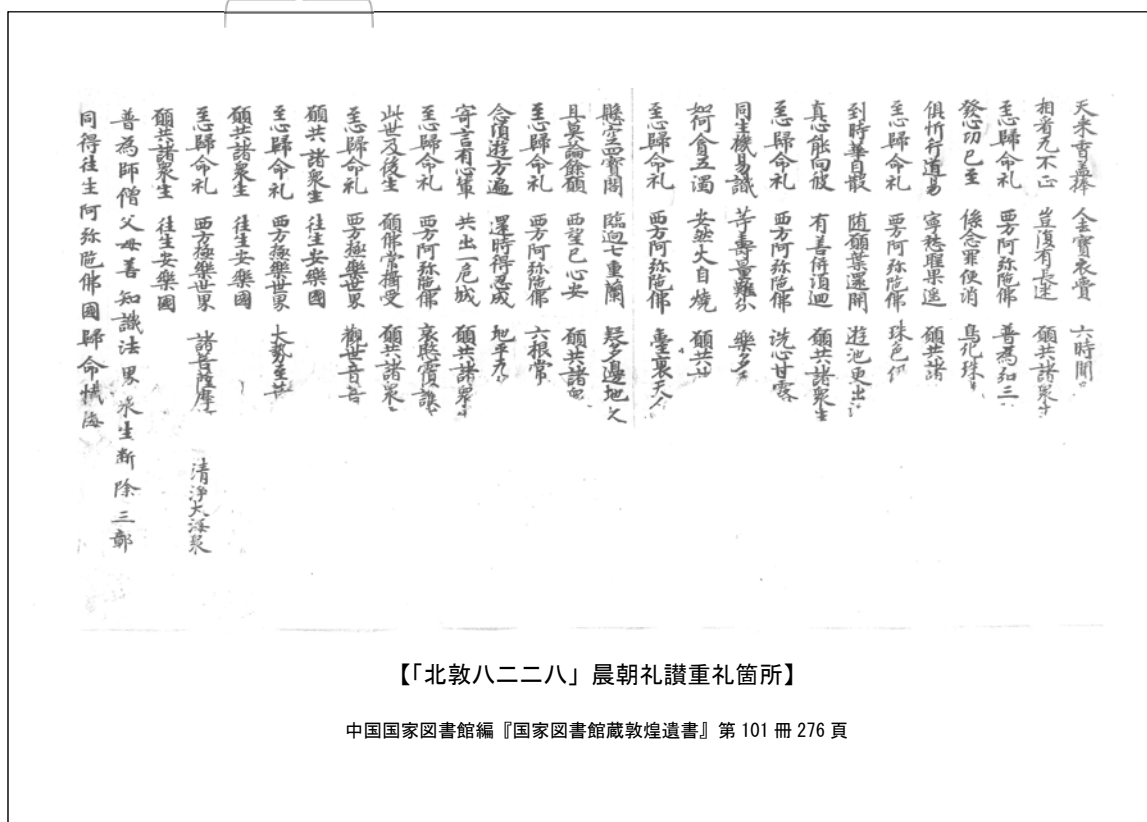 天来香盖捧 金去寶衣賷 六時聞
相看无不正 豈復有長迷 願共諸眾生
至心歸命礼 西方阿弥陁佛 普為
發心功已至 係念罪便消 鳥化珠
俱忻行道易 寧愁聖果遥 願共諸
至心歸命礼 西方阿弥陁佛 珠色仍
到時華自散 随願葉還開 遊池更出
真心能向彼 有善併須迴 願共諸眾生
至心歸命礼 西方阿弥陁佛 洗心甘露
同生機易識 等壽量難分 樂多
如何貪五濁 安然火自燒 願共
至心歸命礼 西方阿弥陁佛 臺裏天人
懸空四寶閣 臨迥七重蘭 疑多邊地久
且莫論餘願 西望已心安 願共諸眾
至心歸命礼 西方阿弥陁佛 六根常
念須遊方遍 還時得忍成 地平
寄言有心輩 共出一危城 願共諸眾生
至心歸命礼 西方阿弥陁佛 哀愍覆護
此世及後生 願佛常攝受 願共諸眾
至心歸命礼 西方極樂世界 觀世音菩
願共諸眾生 往生安樂國
至心歸命礼 西方極樂世界 大勢至菩
願共諸眾生 往生安樂國
至心歸命礼 西方極樂世界 諸菩薩摩 清淨大海眾
願共諸眾生 往生安樂國
普為師僧父母善知識法界眾生断除三鄣
同得往生阿弥陁佛國歸命懺悔
【「北敦八二二八」晨朝礼讃重礼箇所】
中国国家図書館編『国家図書館蔵敦煌遺書』第 101 冊 276 頁